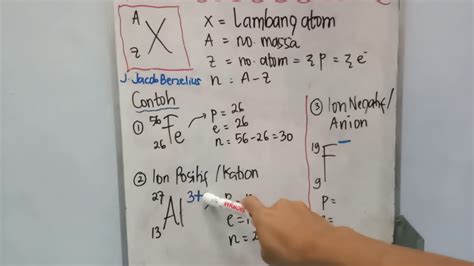 A
Z X
X = Lambang atom
A = no. massa
Z = no. atom = Σp = Σe⁻
n = A-Z
J. Jacob Berzelius
Contoh
① ⁵⁶₂₆Fe → p = 26
e = 26
n = 56-26=30
② Ion Positif/Kation
²⁷₁₃Al³⁺
e =
n = 2
③ Ion Negatif/
Anion
¹⁹₉F⁻
p =
e =
n =